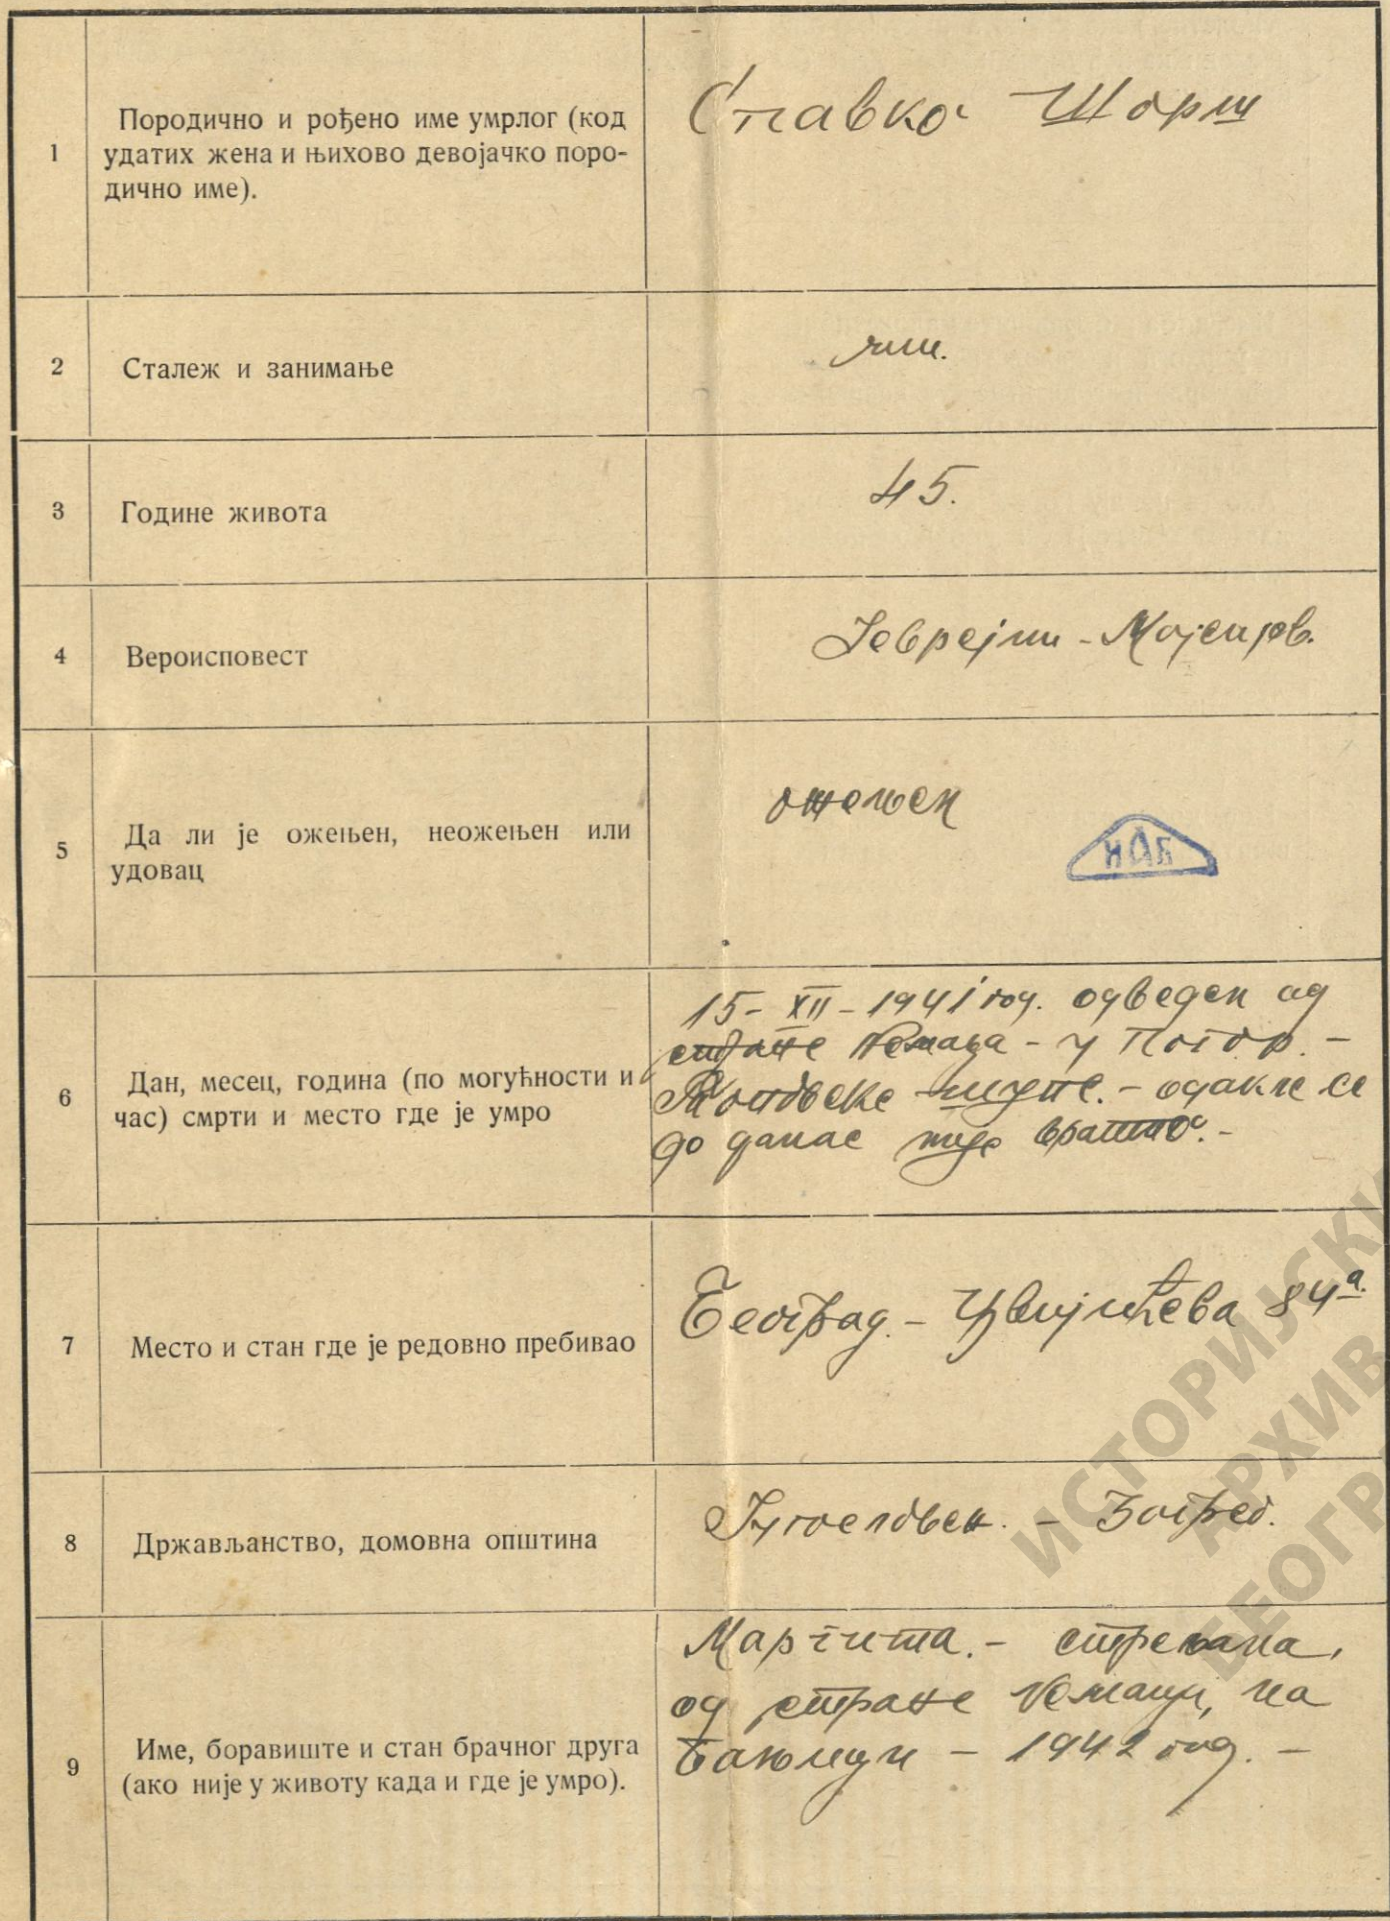 1
Породично и рођено име умрлог (код
удатих жена и њихово девојачко поро-
дично име).
Славко Шорш
2
Сталеж и занимање
3
Године живота
45.
4
Вероисповест
Јеврејин - Мојсијев.
5
Да ли је ожењен, неожењен или
удовац
ожењен
ИАБ
6
Дан, месец, година (по могућности и
час) смрти и место где је умро
15 - XII - 1941 год. одведен од
стране Немаца - у Логор. -
Топовске шупе. - одакле се
до данас није вратио. -
7
Место и стан где је редовно пребивао
Београд. - Цвијићева 84а.
8
Држављанство, домовна општина
Југословен. - Загреб.
9
Име, боравиште и стан брачног друга
(ако није у животу када и где је умро).
Маргита. - стрељана,
од стране Немаца, на
Бањици - 1942 год. -
ИСТОРИЈСКИ
АРХИВ
БЕОГР